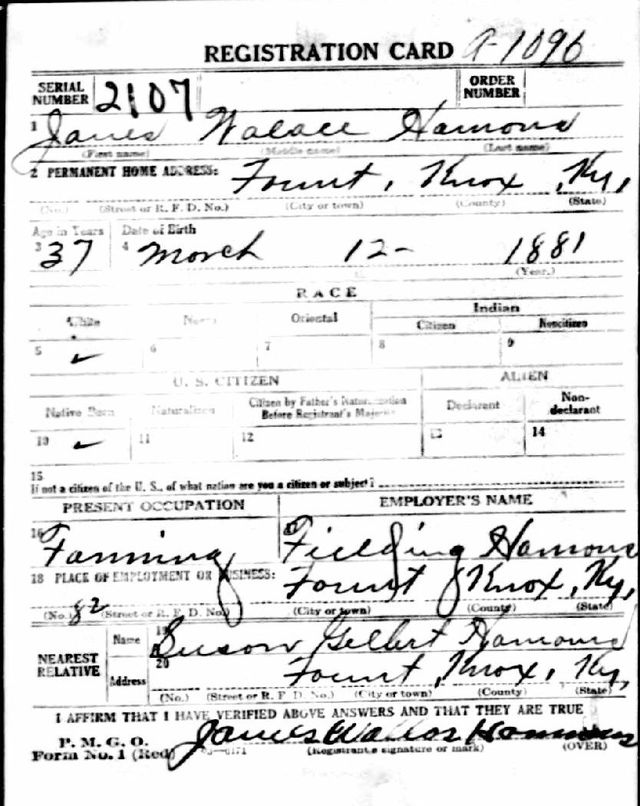 REGISTRATION CARD A-1096
SERIAL NUMBER 2107 ORDER NUMBER
1 James Walace Hamons
(First name) (Middle name) (Last name)
2 PERMANENT HOME ADDRESS: Fount, Knox, Ky,
(No.) (Street or R. F. D. No.) (City or town) (County) (State)
Age in Years Date of Birth
3 37 4 March 12- 1881
(Year.)
RACE
White Negro Oriental Indian
Citizen Noncitizen
5 ✓ 6 7 8 9
U. S. CITIZEN ALIEN
Native Born Naturalized Citizen by Father's Naturalization Before Registrant's Majority Declarant Non-declarant
10 ✓ 11 12 13 14
15
If not a citizen of the U. S., of what nation are you a citizen or subject?
PRESENT OCCUPATION EMPLOYER'S NAME
16 Farming Fielding Hamons
18 PLACE OF EMPLOYMENT OR BUSINESS: Fount Knox, Ky,
(No.) 82 (Street or R. F. D. No.) (City or town) (County) (State)
NEAREST RELATIVE Name 19 Suson Gilbert Hamons
Address 20 Fount, Knox, Ky,
(No.) (Street or R. F. D. No.) (City or town) (County) (State)
I AFFIRM THAT I HAVE VERIFIED ABOVE ANSWERS AND THAT THEY ARE TRUE
P. M. G. O.
Form No. 1 (Red) James Wallas Hammons
(Registrant's signature or mark) (OVER)